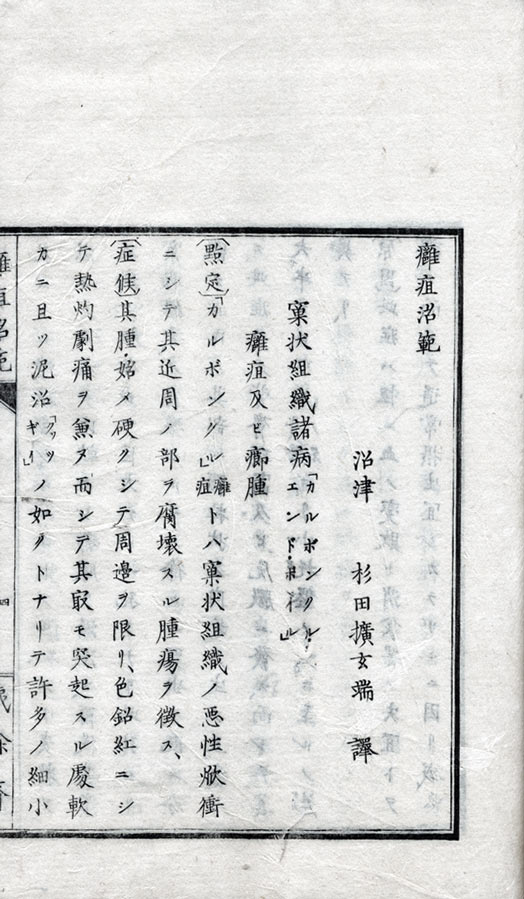 癰疽治範
沼津 杉田擴玄端 譯
窠状組織諸病「カルボンクル・エンド・ボイル」
癰疽及ヒ癤腫
〔點定〕「カルボンクル」癰疽トハ窠状組織ノ悪性焮衝
ニシテ其近周ノ部ヲ腐壊スル腫瘍ヲ徴ス、
〔症候〕其腫始メ硬クシテ周邊ヲ限リ、色銘紅ニシ
テ熱灼劇痛ヲ兼ヌ而シテ其最モ突起スル處軟
カニ且ツ泥沼「クワッギー」ノ如クトナリテ許多ノ細小
癰疽治範
四